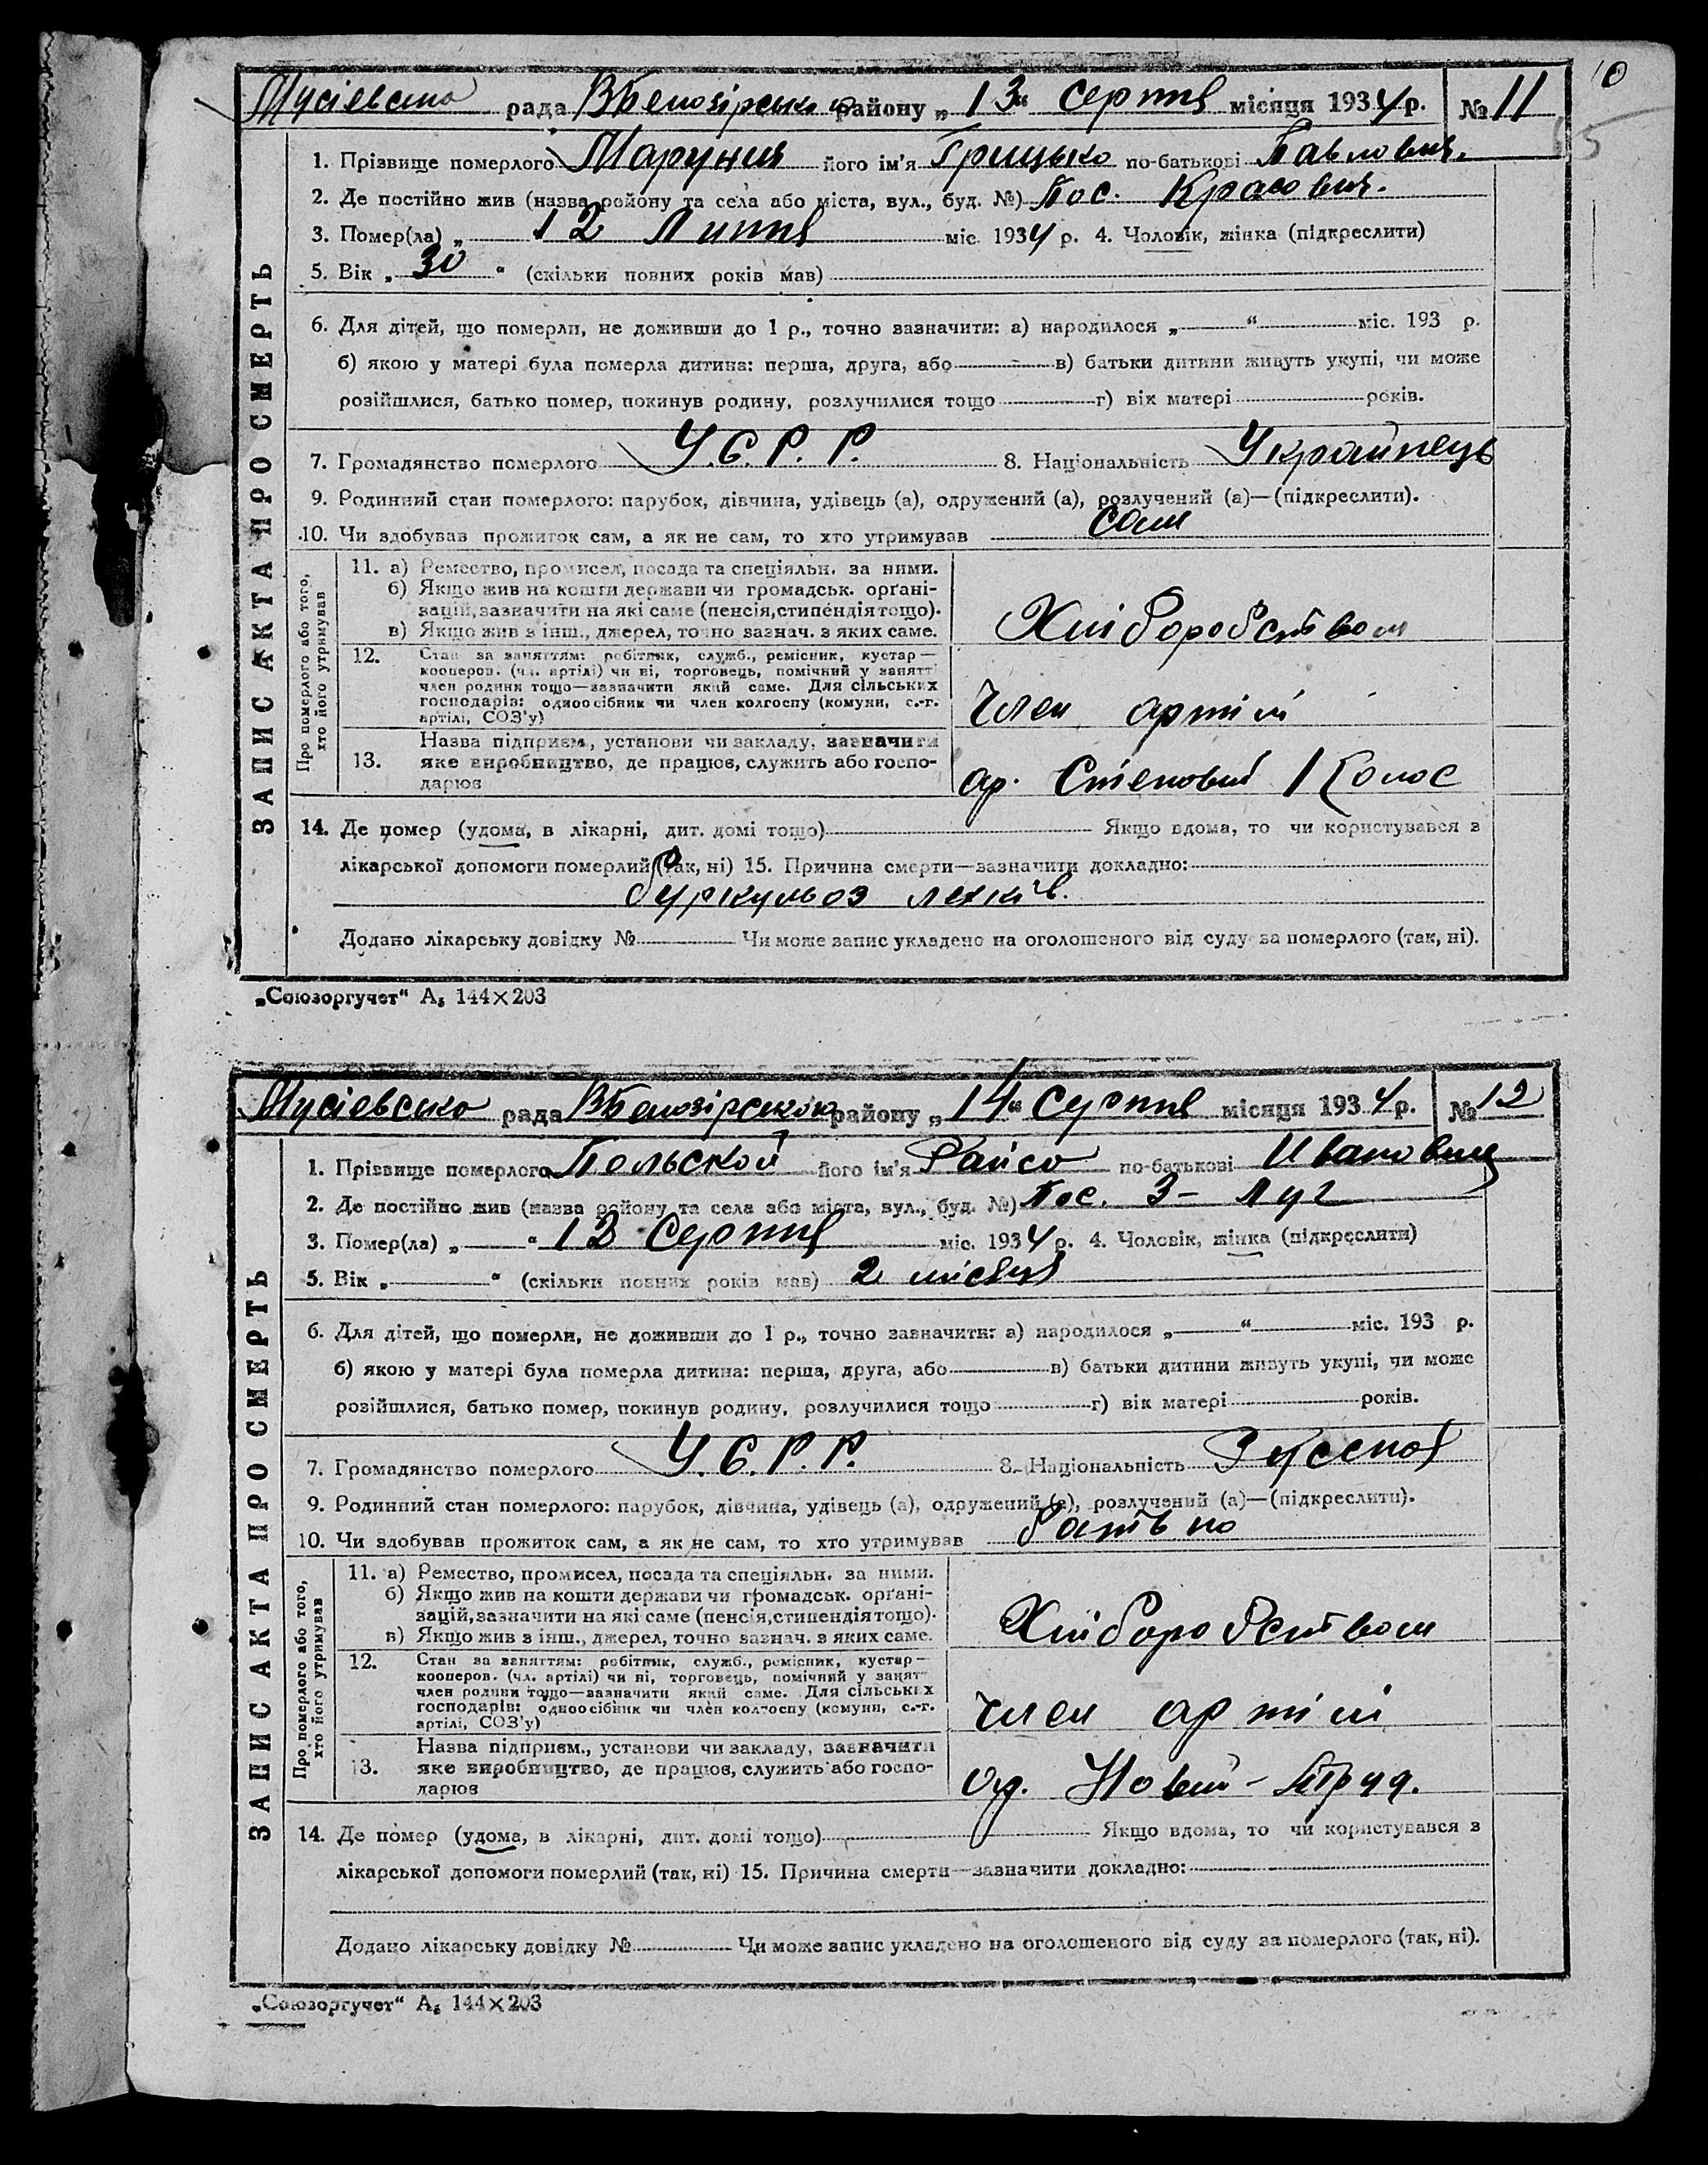 10
Мусіевська рада ВБелозірськ району „13“ серпня місяця 1934 р. № 11
15
1. Прізвище померлого Маруния його ім'я Грицько по-батькові Павлович.
2. Де постійно жив (назва району та села або міста, вул., буд. №) Пос. Красовия.
3. Помер(ла) „ 12 Липня міс. 1934 р. 4. Чоловік, жінка (підкреслити)
5. Вік „ 30 “ (скільки повних років мав)
6. Для дітей, що померли, не доживши до 1 р., точно зазначити: а) народилося „ “ міс. 193 р.
б) якою у матері була померла дитина: перша, друга, або в) батьки дитини живуть укупі, чи може
розійшлися, батько помер, покинув родину, розлучилися тощо г) вік матері років.
7. Громадянство померлого У.С.Р.Р. 8. Національність Українець
9. Родинний стан померлого: парубок, дівчина, удівець (а), одружений (а), розлучений (а)—(підкреслити).
10. Чи здобував прожиток сам, а як не сам, то хто утримував сам
ЗАПИС АКТА ПРО СМЕРТЬ
Про померлого або того,
хто його утримував
11. а) Ремество, промисел, посада та спеціяльн. за ними.
б) Якщо жив на кошти держави чи громадськ. орґані-
зацій, зазначити на які саме (пенсія, стипендія тощо).
в) Якщо жив з інш., джерел, точно зазнач. з яких саме.
Хліборобством
12. Стан за заняттям: робітник, служб., ремісник, кустар—
кооперов. (чл. артілі) чи ні, торговець, помічний у занятт
член родини тощо—зазначити який саме. Для сільських
господарів: одноосібник чи член колгоспу (комуни, с.-г.
артілі, СОЗ'у)
Член артілі
13. Назва підприєм., установи чи закладу, зазначити
яке виробництво, де працює, служить або госпо-
дарює
ар. Степовий Колос
14. Де помер (удома, в лікарні, дит. домі тощо) Якщо вдома, то чи користувався з
лікарської допомоги померлий (так, ні) 15. Причина смерти—зазначити докладно:
буркульоз легків.
Додано лікарську довідку № Чи може запис укладено на оголошеного від суду за померлого (так, ні).
„Союзоргучет“ А₅ 144×203
Мусіевсько рада ВБелозірською району „14“ Серпня місяця 1934 р. № 12
1. Прізвище померлого Польской його ім'я Раисо по-батькові Ивановиц
2. Де постійно жив (назва району та села або міста, вул., буд. №) Пос. 3- Луг
3. Помер(ла) „ “ 13 Серпня міс. 1934 р. 4. Чоловік, жінка (підкреслити)
5. Вік „ “ (скільки повних років мав) 2 місяця
6. Для дітей, що померли, не доживши до 1 р., точно зазначити: а) народилося „ “ міс. 193 р.
б) якою у матері була померла дитина: перша, друга, або в) батьки дитини живуть укупі, чи може
розійшлися, батько помер, покинув родину, розлучилися тощо г) вік матері років.
7. Громадянство померлого У.С.Р.Р. 8. Національність
9. Родинний стан померлого: парубок, дівчина, удівець (а), одружений (а), розлучений (а)—(підкреслити).
10. Чи здобував прожиток сам, а як не сам, то хто утримував батько
ЗАПИС АКТА ПРО СМЕРТЬ
Про померлого або того,
хто його утримував
11. а) Ремество, промисел, посада та спеціяльн. за ними.
б) Якщо жив на кошти держави чи громадськ. орґані-
зацій, зазначити на які саме (пенсія, стипендія тощо).
в) Якщо жив з інш., джерел, точно зазнач. з яких саме.
Хліборобством
12. Стан за заняттям: робітник, служб., ремісник, кустар—
кооперов. (чл. артілі) чи ні, торговець, помічний у занят
член родини тощо—зазначити який саме. Для сільських
господарів: одноосібник чи член колгоспу (комуни, с.-г.
артілі, СОЗ'у)
Член артілі
13. Назва підприєм., установи чи закладу, зазначити
яке виробництво, де працює, служить або госпо-
дарює
ар. Новий-Труд.
14. Де помер (удома, в лікарні, дит. домі тощо) Якщо вдома, то чи користувався з
лікарської допомоги померлий (так, ні) 15. Причина смерти—зазначити докладно:
Додано лікарську довідку № Чи може запис укладено на оголошеного від суду за померлого (так, ні).
„Союзоргучет“ А₅ 144×203